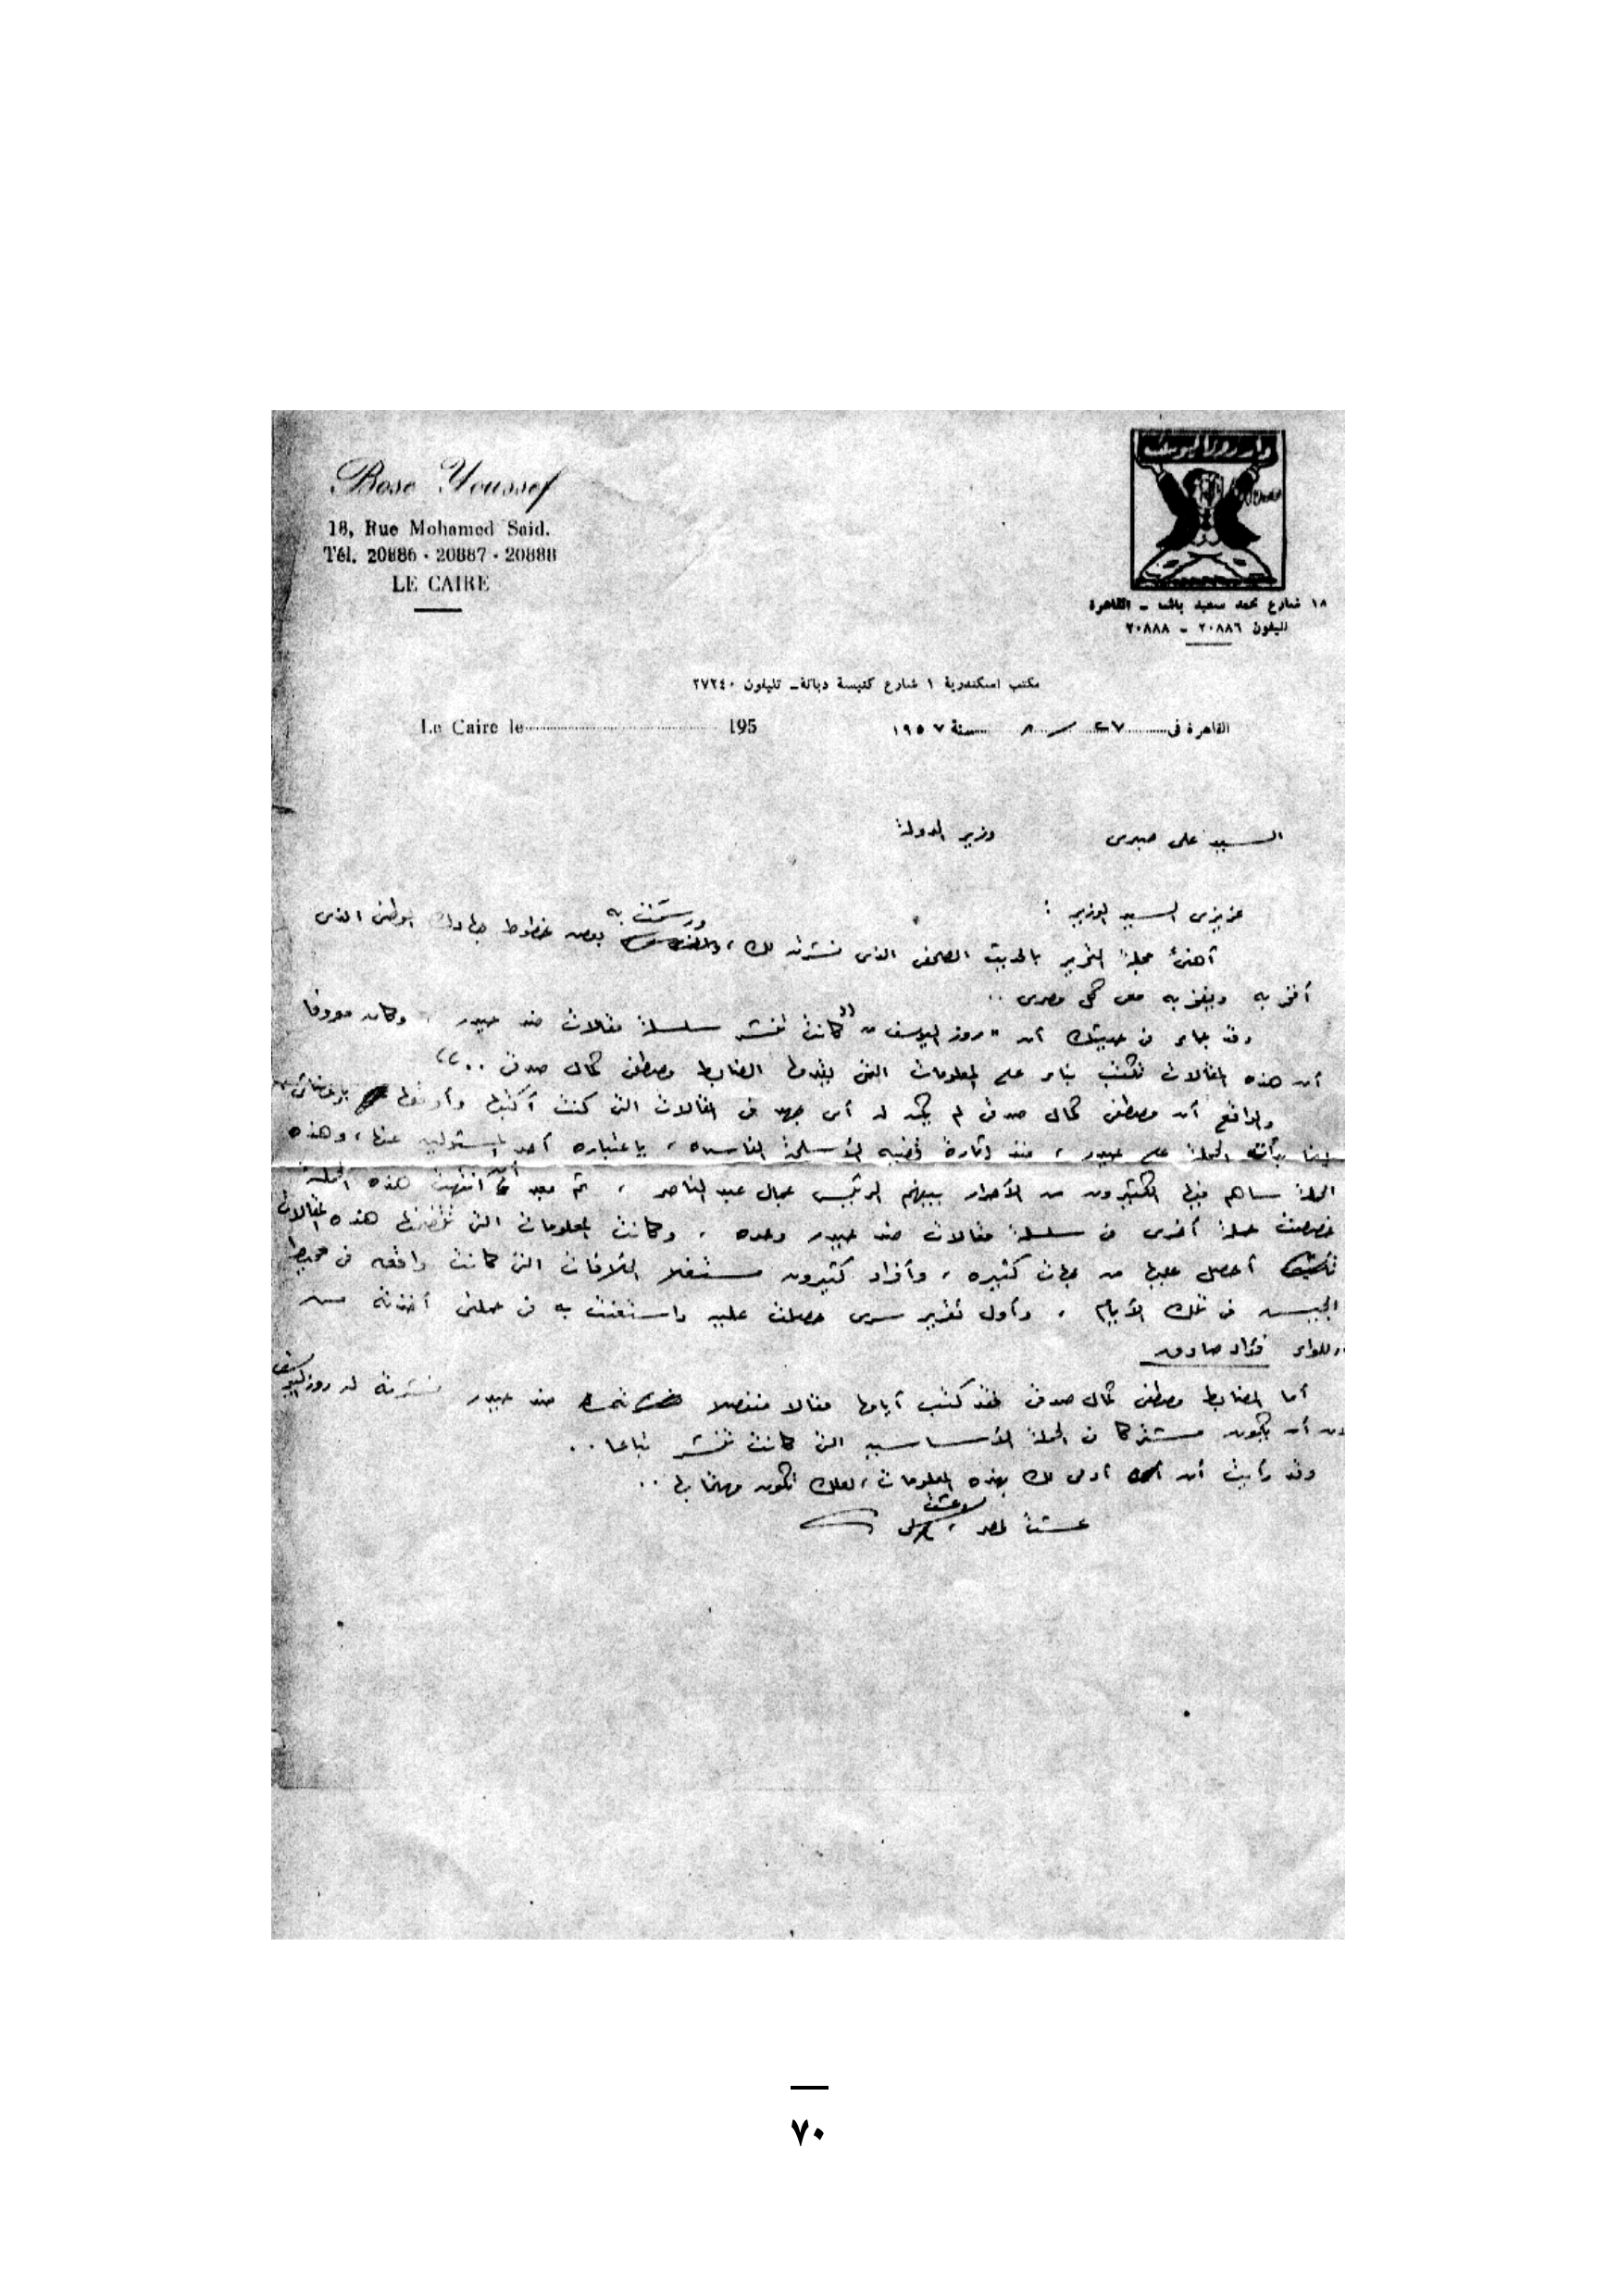 Rose Youssef
18, Rue Mohamed Said.
Tél. 20886 - 20887 - 20888
LE CAIRE
دار روز اليوسف
١٨ شارع محمد سعيد باشا - القاهرة
تليفون ٢٠٨٨٦ - ٢٠٨٨٨
مكتب اسكندرية ١ شارع كنيسة دبانة - تليفون ٢٧٢٤٠
Le Caire le 195
القاهرة فى ٢٧ / ٨ سنة ١٩٥٧
السيد على صبرى وزير الدولة
عزيزى السيد الوزير :
أهنئ مجلة التحرير بالحديث الصحفى الذى نشرته لك، ورسمت به بعض خطوط جهادك الوطنى الذى
أفخر به ويفخر به معى كل مصرى ..
وقد جاء فى حديثك أن "روز اليوسف" كانت تنشر سلسلة مقالات ضد حيدر، وكان معروفا
أن هذه المقالات تكتب بناء على المعلومات التى يقدمها الضابط مصطفى كمال صدقى ..»
والواقع أن مصطفى كمال صدقى لم يكن له أى جهد فى المقالات التى كنت أكتبها وأوقعها
بدأت الحملة على حيدر، منذ إثارة قضية الأسلحة الفاسدة، باعتباره أحد المسئولين عنها، وهذه
الحملة ساهم فيها الكثيرون من الأحرار بينهم الرئيس جمال عبد الناصر، ثم بعد أن انتهت هذه الحملة
خصصت حملة أخرى فى سلسلة مقالات ضد حيدر وحده، وكانت المعلومات التى تتضمنها هذه المقالات
أحصل عليها من جهات كثيره، وأفراد كثيرون مستغلا الخلافات التى كانت واقعه فى محيط
الجيش فى تلك الأيام، وأول تقرير سرى حصلت عليه واستعنت به فى حملتى أخذته من
اللواء فؤاد صادق
أما الضابط مصطفى كمال صدقى فقد كتب أيامها مقالا منفصلا ضد حيدر نشرته له روز اليوسف
دون أن يكون مشتركا فى الحملة الأساسيه التى كانت تنشر تباعا ..
وقد رأيت أن أدلى لك بهذه المعلومات، لعلك تكون مهتما بها ..
عشت لمصر،
٧٠